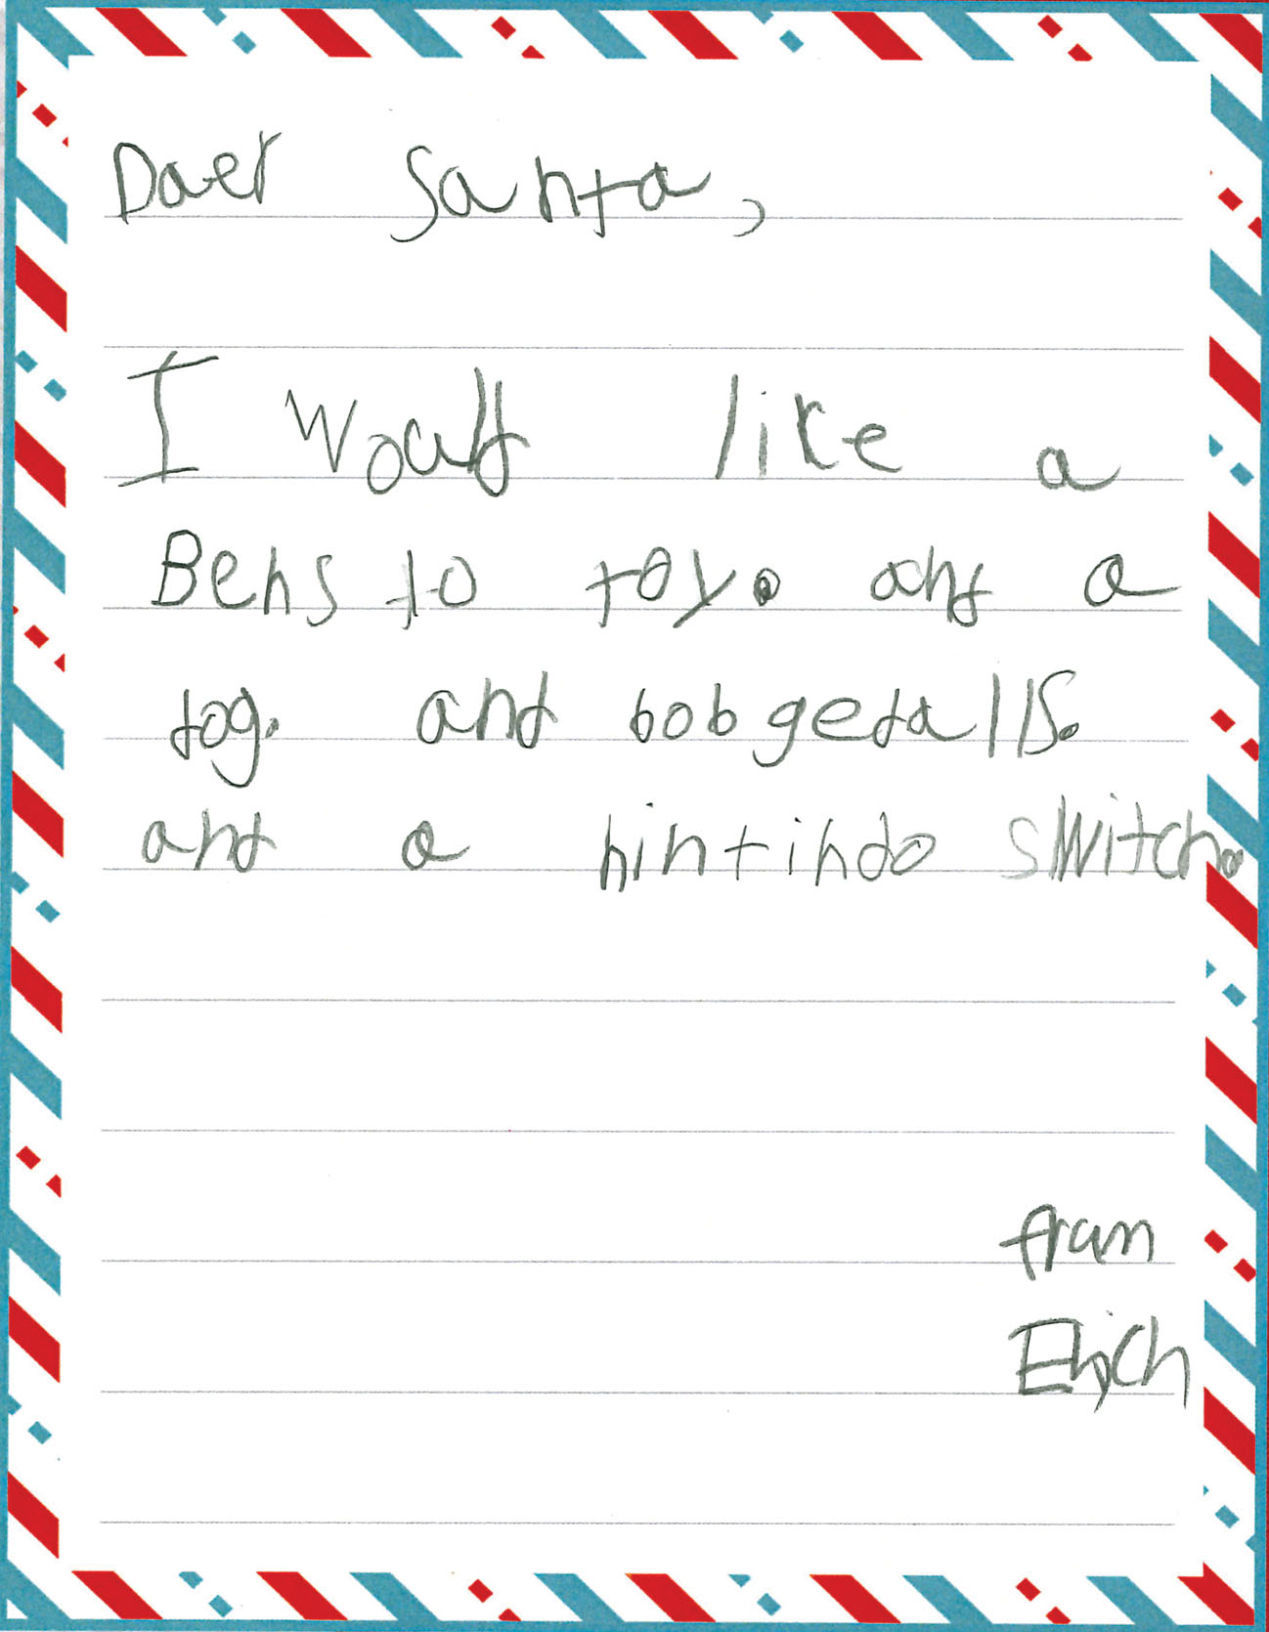 Daer Santa,
I would like a
Bens to toy. and a
dog. and bobgedalls.
and a nintindo switch.
fram